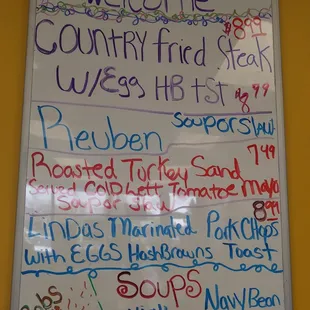 Welcome
$8.99
COUNTRY fried Steak
W/Egg HB + ST $8.99
Reuben Soup or Slaw
7.49
Roasted Turkey Sand
Served Cold Lett Tomatoe Mayo
Soup or Slaw 8.99
LiNDas Marinated Pork Chops
with EGGS HashBrowns Toast
SOUPS
Navy Bean